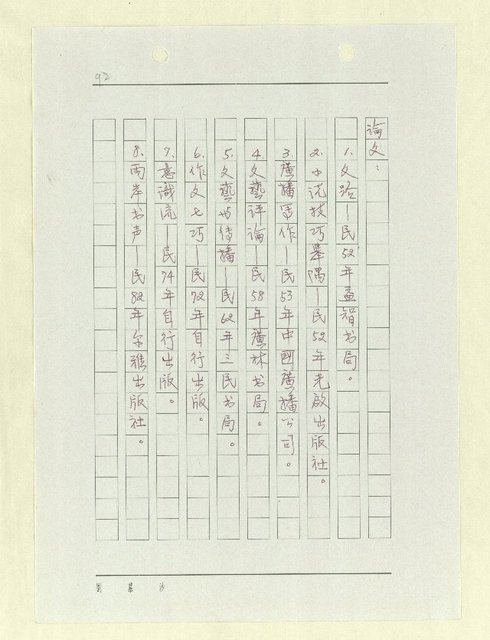 92
論文：
1. 文路—民52年益智书局。
2. 小说技巧举隅—民52年光啟出版社。
3. 廣播写作—民53年中國廣播公司。
4. 文藝评论—民58年廣林书局。
5. 文藝与传播—民62年三民书局。
6. 作文七巧—民72年自行出版。
7. 意識流—民74年自行出版。
8. 两岸书声—民82年尔雅出版社。
劉慕沙